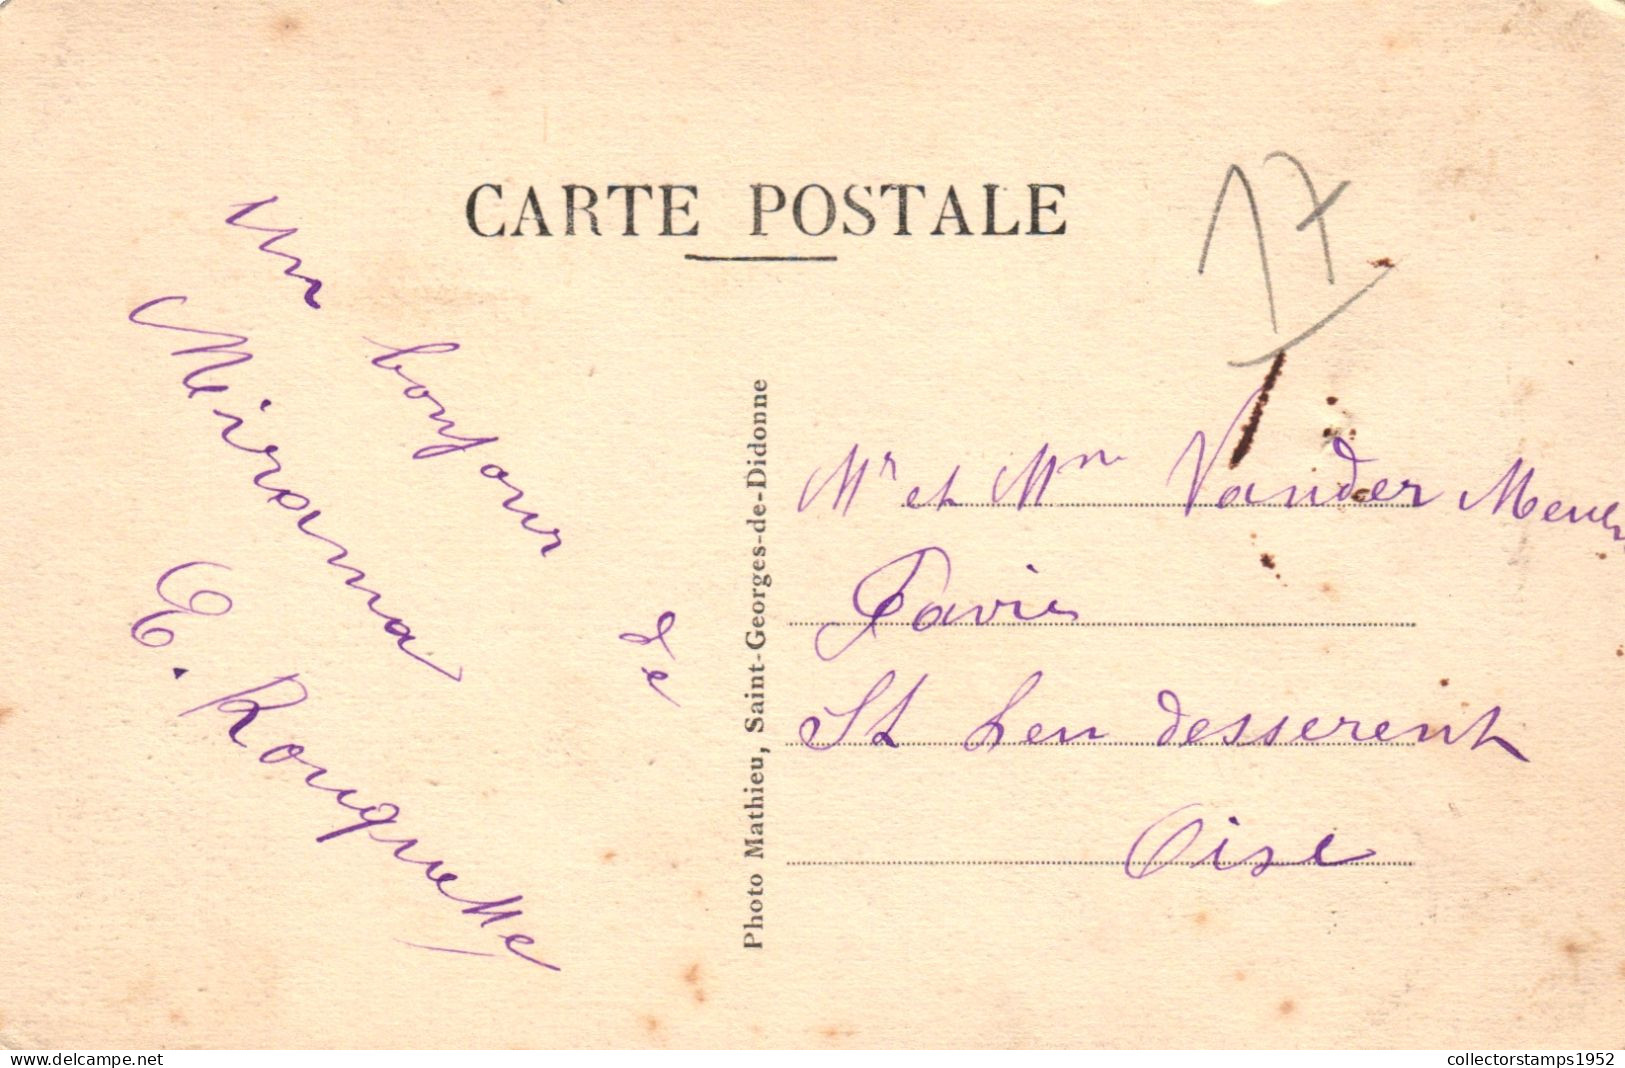 CARTE POSTALE
17
un bonjour de
Mirama
E. Rouquette
Photo Mathieu, Saint-Georges-de-Didonne
Mr et Mm Vander Meule
Favier
St Leu desserent
Oise
delcampe.net
collectorstamps1952